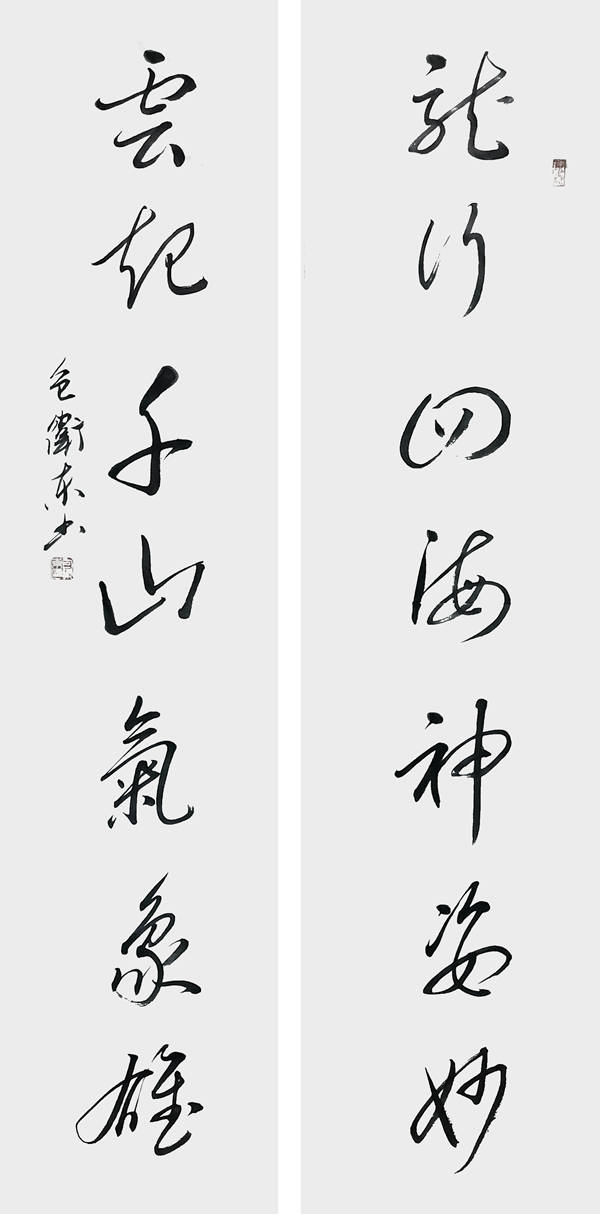 龍行四海神姿妙
雲起千山氣象雄
衛東书